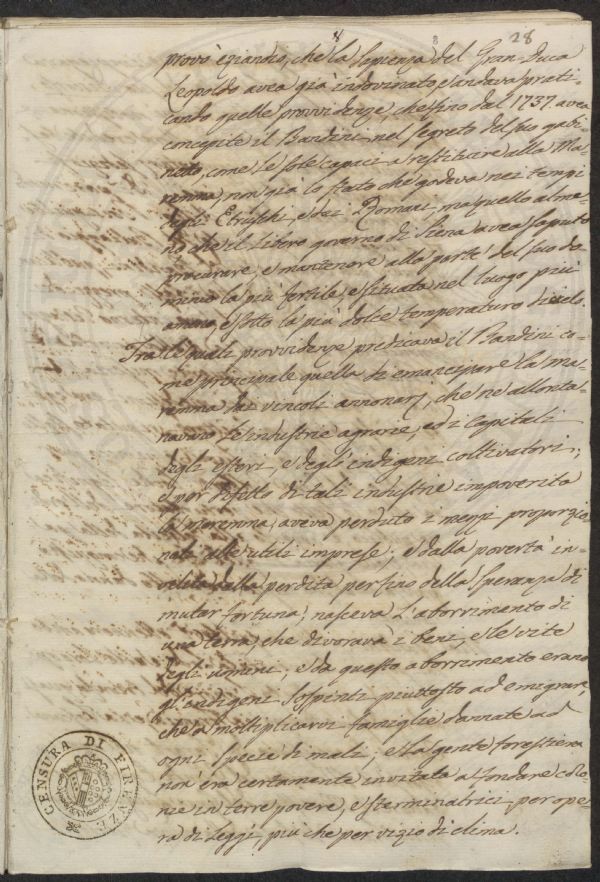 8 8 28
provò eziandio, che la sapienza del Gran-Duca
Leopoldo avea già indovinato, e andava prati-
cando quelle provvidenze, che fino dal 1737 avea
concepite il Bandini nel segreto del suo gabi-
netto, come le sole capaci a restituire alla Ma-
remma, non già lo stato che godeva nei tempi
degli Etruschi, e dei Romani, ma quello alme-
no che il libero governo di Siena avea saputo
procurare, e mantenere alla parte del suo do-
minio la più fertile, e situata nel luogo più
ameno, e sotto la più dolce temperatura di cielo.
Tralle quali provvidenze predicava il Bandini co-
me principale quella di emancipare la Ma-
remma dai vincoli annonarj, che ne allonta-
navano le industrie agrarie, ed i capitali
degli esteri, e degl'indigeni coltivatori;
e per difetto di tali industrie impoverita
la Maremma, aveva perduto i mezzi proporzio-
nati alle utili imprese; e dalla povertà in-
vilita dalla perdita perfino della speranza di
mutar fortuna, nasceva l'aborrimento di
una terra, che divorava i beni, e le vite
degli uomini; e da questo aborrimento erano
gl'indigeni sospinti piuttosto ad emigrare,
che a moltiplicarvi famiglie dannate ad
ogni specie di mali; e la gente forestiera
non era certamente invitata a fondare colo-
nie in terre povere, e sterminatrici per ope-
ra di Leggi più che per vizio di clima.
CENSURA DI FIRENZE